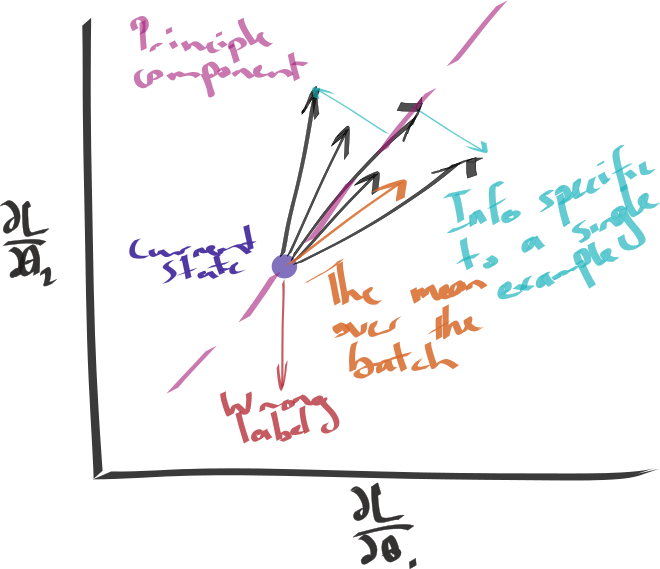 Principle
component
∂L
∂θ₂
Current
state
Info specific
to a single
example
The mean
over the
batch
Wrong
label
∂L
∂θ₁